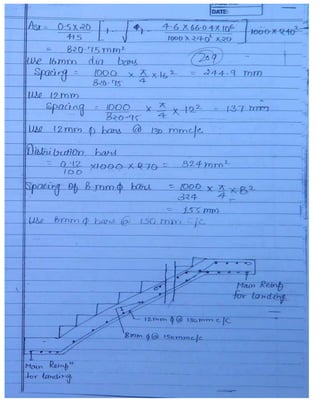 DATE:
Ast = 0.5×20 / 415 [1 - √1 - 4.6 × 66.04×10⁶ / 1000×240²×20] 1000×240
= 820.75mm²
Use 16mm dia bars
209
Spacing = 1000 / 820.75 × π/4 × 16² = 244.9 mm
Use 12mm
Spacing = 1000 / 820.75 × π/4 × 12² = 137 mm
Use 12mm φ bars @ 130 mmc/c
Distribution bars
= 0.12 / 100 ×1000×270 = 324mm²
Spacing of 8 mmφ bars = 1000 / 324 × π/4 × 8²
= 155 mm
Use 8mmφ bars @ 150 mm c/c
Main Reinfⁿ
for landing
12mm φ@ 130mm c/c
8mm φ@ 150mmc/c
Main Reinfⁿ
for landing